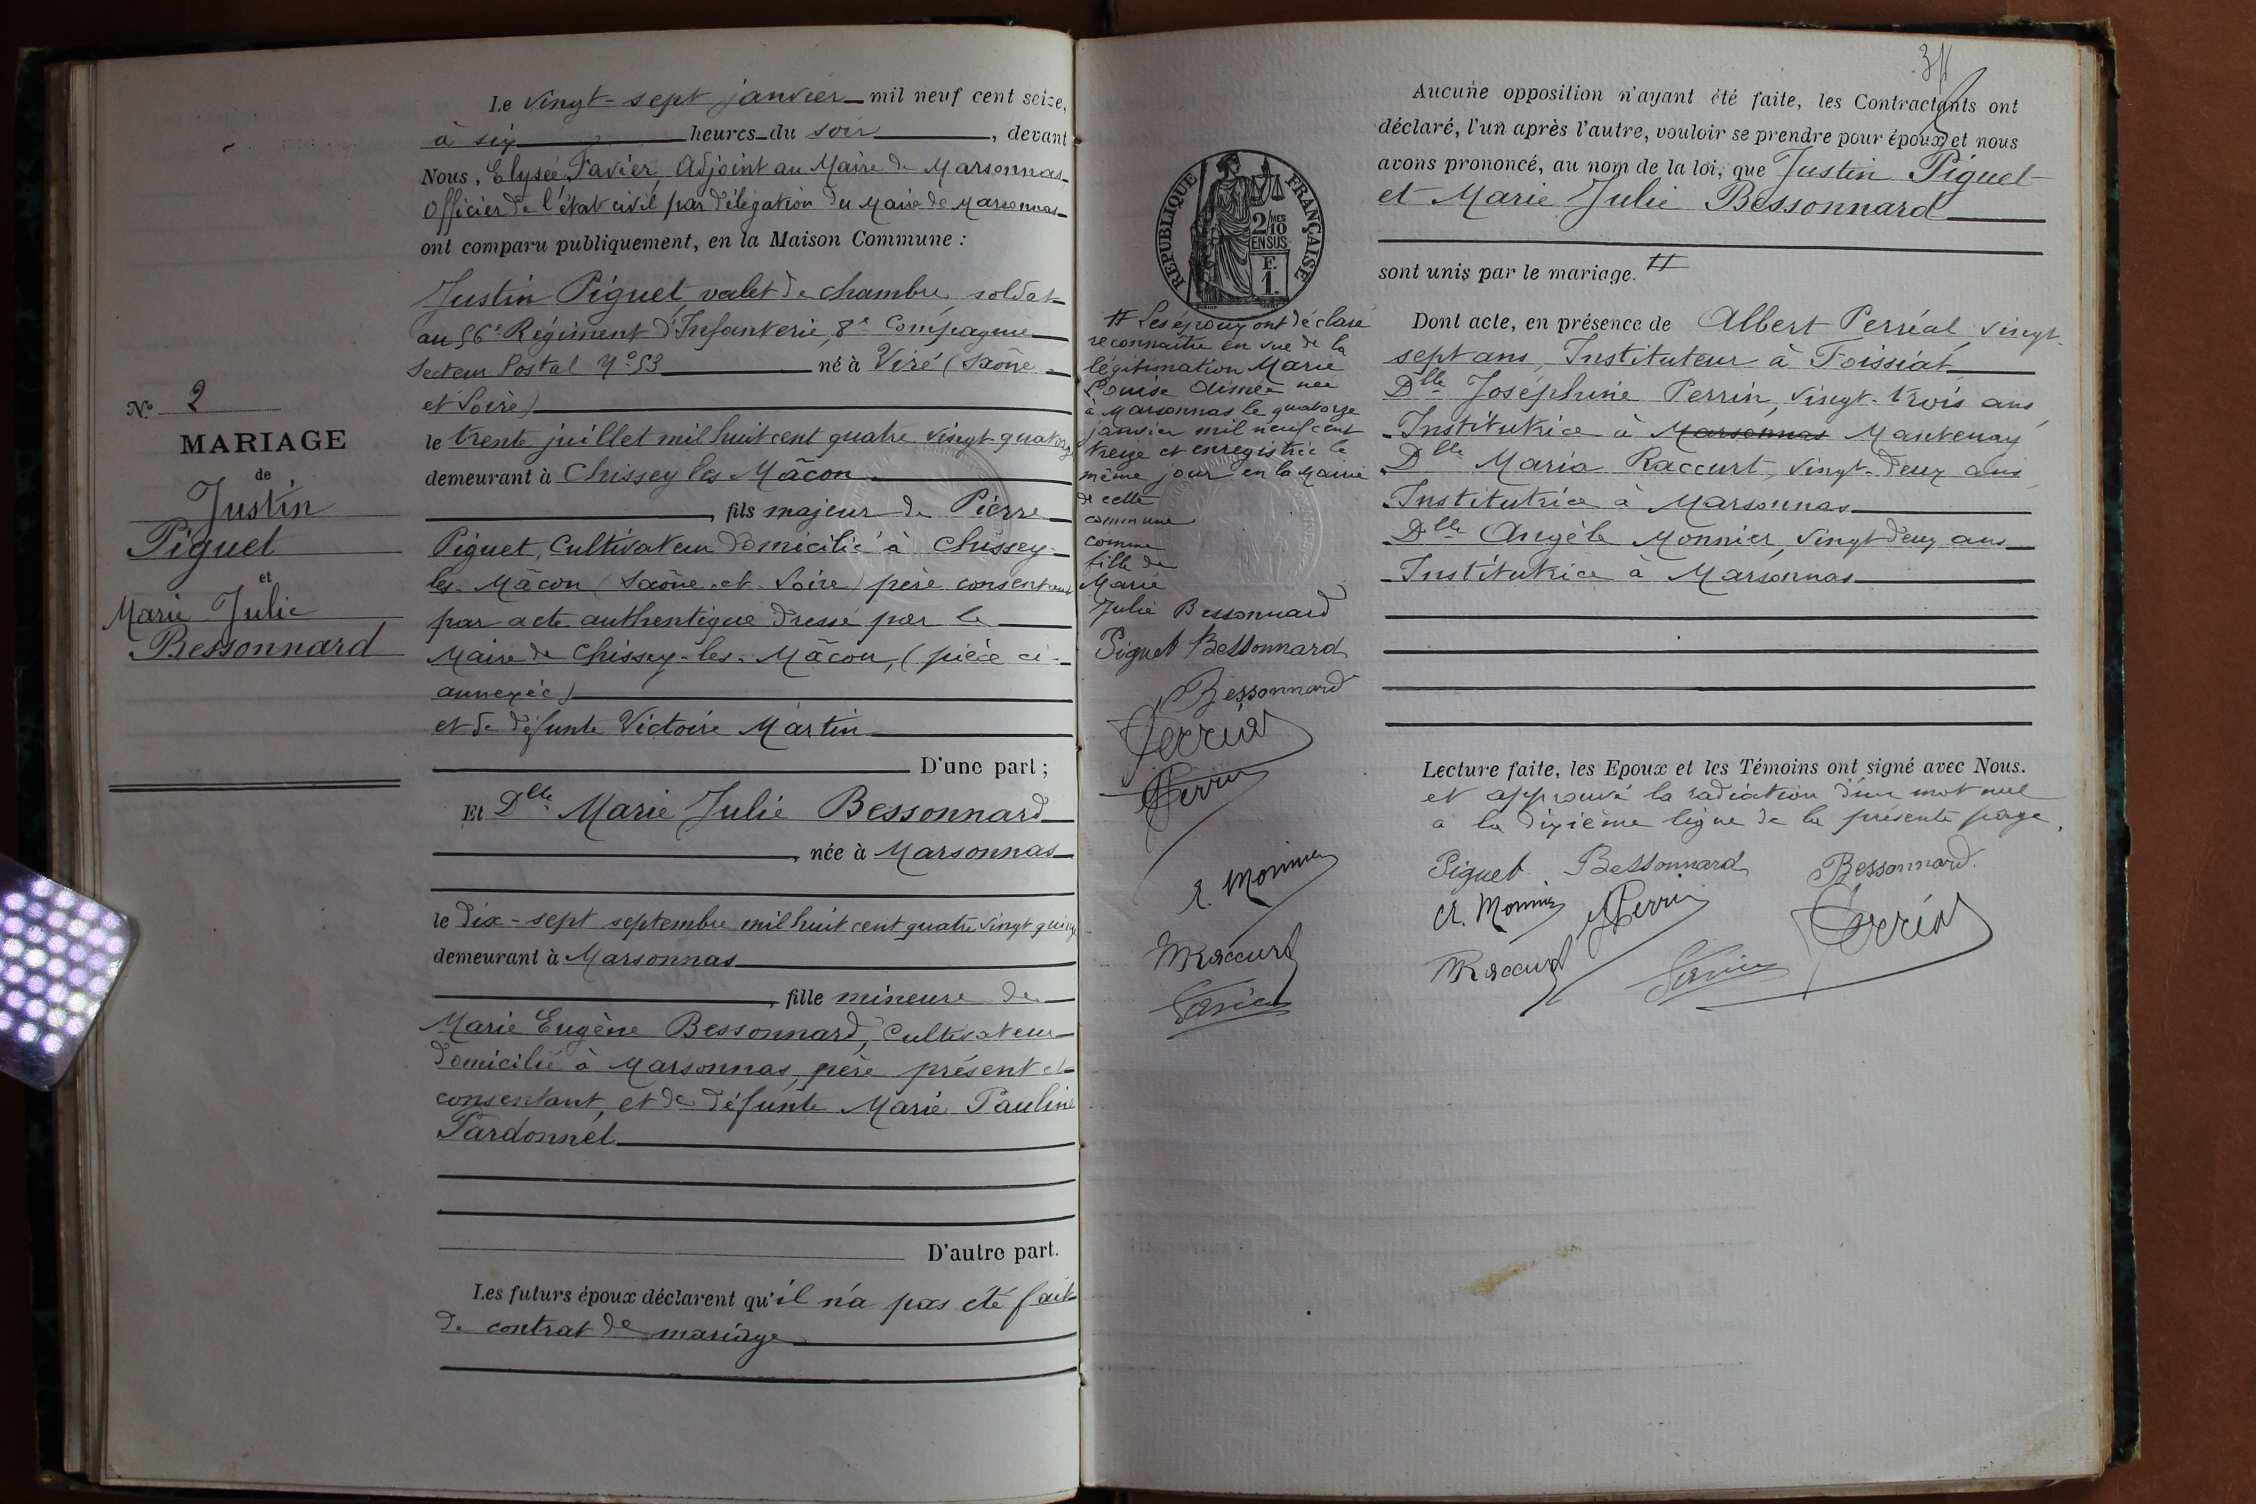 Nº 2
MARIAGE
de
Justin
Piguet
et
Marie Julie
Bessonnard
Le vingt-sept janvier mil neuf cent seize,
à six heures du soir, devant
Nous, Elysée Favier, Adjoint au Maire de Marsonnas
Officier de l'état civil par délégation du Maire de Marsonnas
ont comparu publiquement, en la Maison Commune :
Justin Piguet, valet de chambre, soldat
au 56e Régiment d'Infanterie, 8e Compagnie
Secteur Postal Nº 53 né à Viré (Saône
et Loire)
le trente juillet mil huit cent quatre vingt-quatorze
demeurant à Chissey les Mâcon
, fils majeur de Pierre
Piguet, Cultivateur domicilié à Chissey-
les-Mâcon (Saône-et-Loire) père consentant
par acte authentique dressé par le
Maire de Chissey-les-Mâcon, (pièce ci-
annexée)
et de défunte Victoire Martin
D'une part ;
Et Dlle Marie Julie Bessonnard
, née à Marsonnas
le dix-sept septembre mil huit cent quatre vingt quinze
demeurant à Marsonnas
, fille mineure de
Marie Eugène Bessonnard, Cultivateur
domicilié à Marsonnas, père présent et
consentant, et de défunte Marie Pauline
Pardonnet
D'autre part.
Les futurs époux déclarent qu'il n'a pas été fait
de contrat de mariage
RÉPUBLIQUE FRANÇAISE
2/10 MES
EN SUS
F.
1.
# Les époux ont déclaré
reconnaître en vue de la
légitimation Marie
Louise Aimée née
à Marsonnas le quatorze
janvier mil neuf cent
treize et enregistrée le
même jour en la Mairie
de cette
commune
comme
fille de
Marie
Julie Bessonnard
Piguet Bessonnard
Bessonnard
Perréal
Perrin
A. Monnier
M Raccurt
Favier
Aucune opposition n'ayant été faite, les Contractants ont
déclaré, l'un après l'autre, vouloir se prendre pour époux, et nous
avons prononcé, au nom de la loi, que Justin Piguet
et Marie Julie Bessonnard
sont unis par le mariage. #
Dont acte, en présence de Albert Perréal, vingt-
sept ans, Instituteur à Foissiat
Dlle Joséphine Perrin, vingt-trois ans
Institutrice à Marsonnas Mantenay
Dlle Maria Raccurt, vingt-deux ans
Institutrice à Marsonnas
Dlle Angèle Monnier, vingt deux ans
Institutrice à Marsonnas
Lecture faite, les Epoux et les Témoins ont signé avec Nous.
et approuvé la radiation d'un mot nul
à la dixième ligne de la présente page.
Piguet Bessonnard Bessonnard
A. Monnier Perrin Perréal
M Raccurt Favier